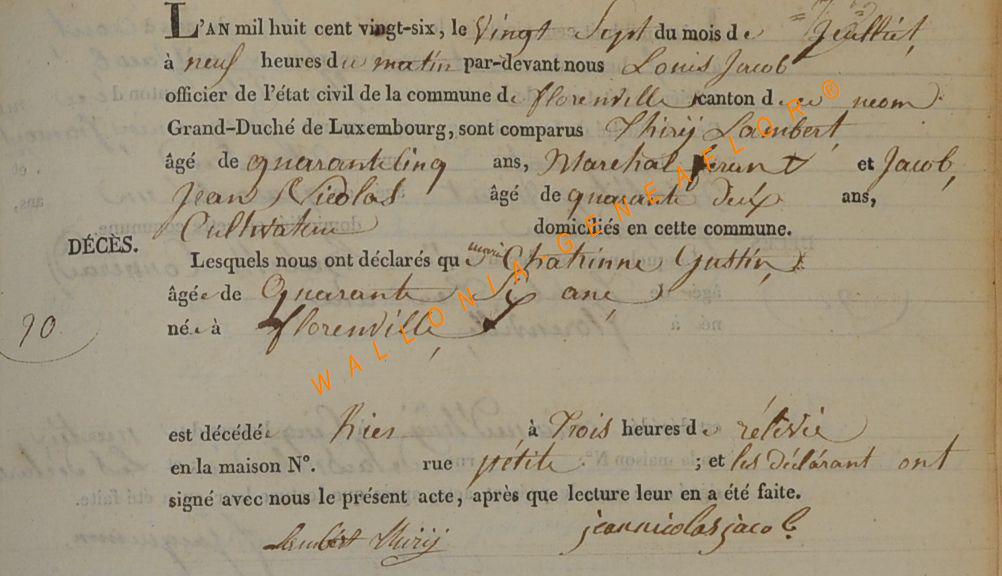 L'AN mil huit cent vingt-six, le Vingt Sept du mois de Jeulliet
à neuf heures du matin par-devant nous Louis Jacob
officier de l'état civil de la commune de florenville canton de ce neom
Grand-Duché de Luxembourg, sont comparus Thirÿ Lambert
âgé de quarantecinq ans, Marchal ferent et Jacob,
Jean Nicolas âgé de quarante deux ans,
Cultivateur domiciliés en cette commune.
DÉCÈS.
Lesquels nous ont déclarés que marie Chatrinne Gustin
âgée de Quarante Six ans
90
née à florenville
est décédée hier à Trois heures de rélévée
en la maison N°. rue pétite ; et les déclárant ont
signé avec nous le présent acte, après que lecture leur en a été faite.
Lambert Thirÿ jeannicolasjacob
WALLONIA-GENEAFLOR®